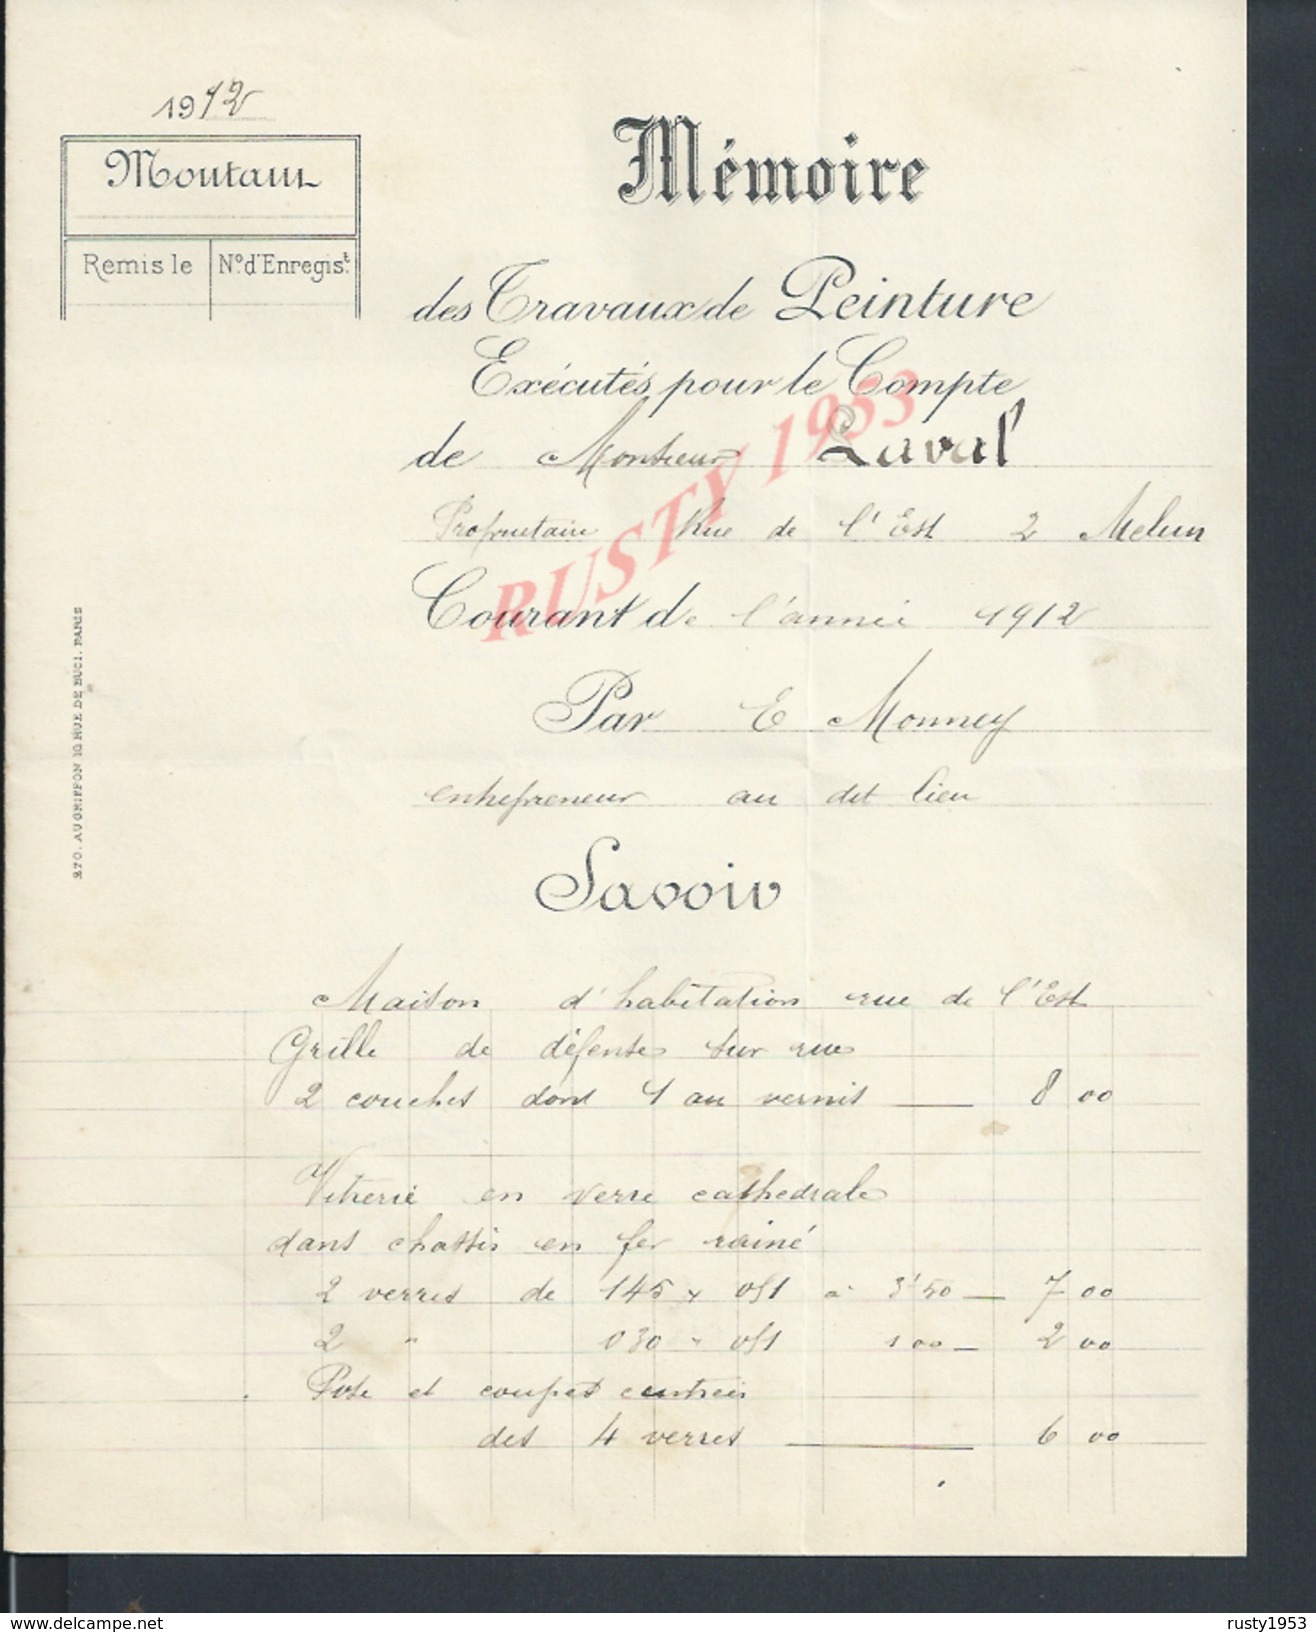 1912
Montant
Remis le
N.º d'Enregis.t
Mémoire
des Travaux de Peinture
Exécutés pour le Compte
de Monsieur Laval
Propriétaire Rue de l'Est 2 Melun
Courant de l'année 1912
Par E Monney
entrepreneur au dit lieu
Savoir
Maison d'habitation rue de l'Est
Grille de défense sur rue
2 couches dont 1 au vernis — 8 00
Vitrerie en verre cathedrale
dans chassis en fer rainé
2 verres de 145 x 051 à 3f50 — 7 00
2 " 030 " 051 1 00 — 2 00
Pose et coupes
des 4 verres — 6 00
270. AU GRIFFON 10, RUE DE BUCI. PARIS
RUSTY 1953
www.delcampe.net
rusty1953